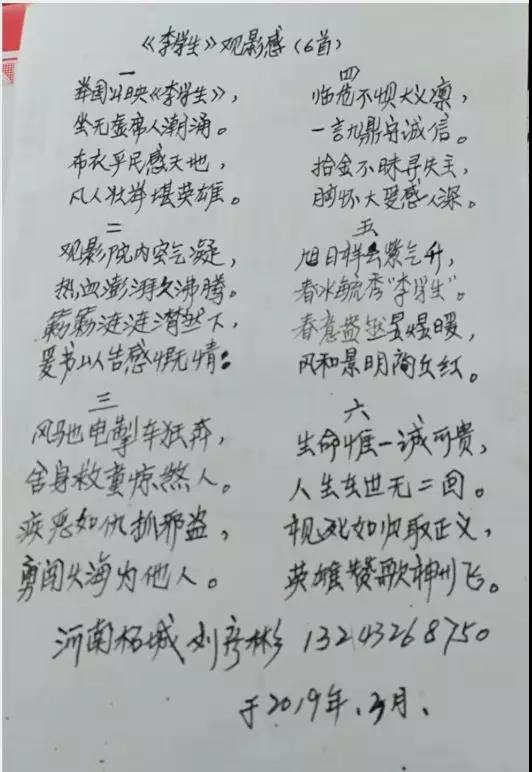 《李学生》观影感（6首）
一
举国上映《李学生》，
坐无虚席人潮涌。
布衣平民感天地，
凡人壮举堪英雄。
二
观影院内空气凝，
热血澎湃久沸腾。
簌簌涟涟潸然下，
罢书以告感慨无情：
三
风驰电掣车狂奔，
舍身救童惊煞人。
疾恶如仇抓邪盗，
勇闯火海为他人。
四
临危不惧大义凛，
一言九鼎守诚信。
拾金不昧寻失主，
胸怀大爱感人深。
五
旭日祥云紫气升，
春冰毓秀“李学生”。
春意盎然昱煜暖，
风和景明商丘红。
六
生命惟一诚可贵，
人生在世无二回。
视死如归取正义，
英雄赞歌神州飞。
河南柘城 刘彦彬 13243268750
于2019年、3月、